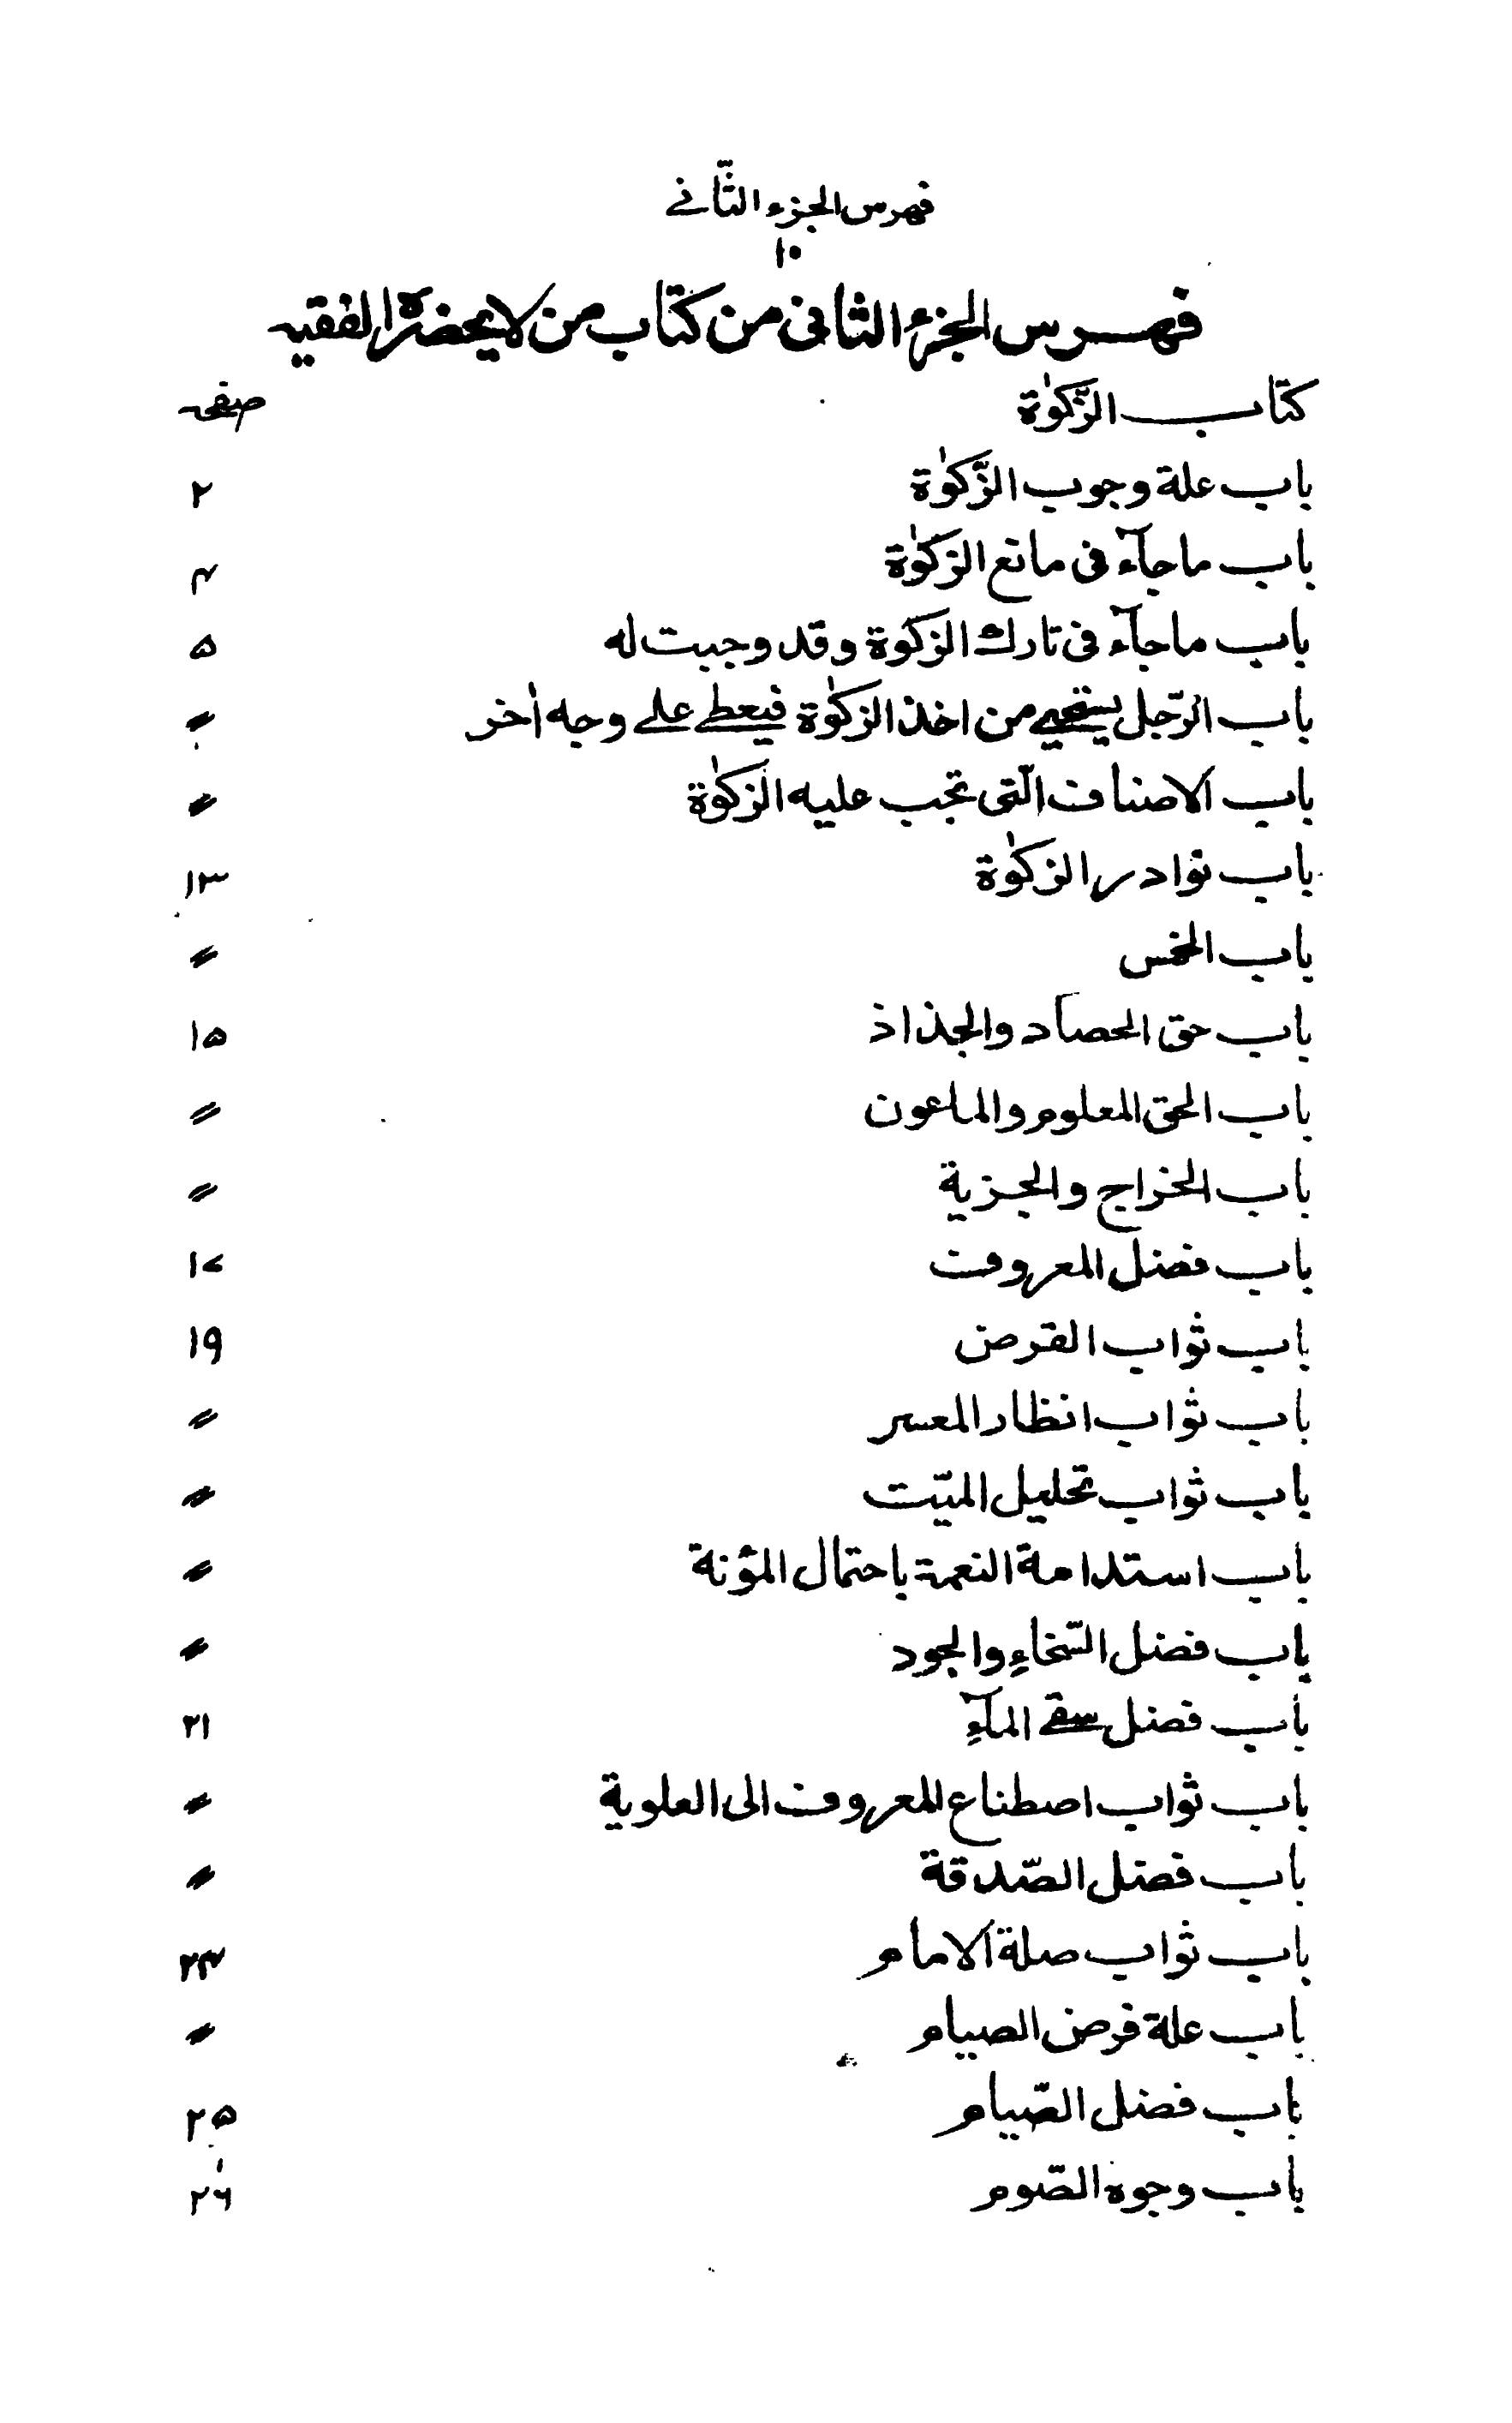 فهرس الجزء الثّاني
١٠
فهرس الجزء الثانى من كتاب من لا يحضره الفقيه
كتاب الزّكوٰة صفحه
باب علة وجوب الزّكوٰة ۲
باب ما جآء فى مانع الزكوٰة ۴
باب ما جآء فى تارك الزكوٰة وقد وجبت له ۵
باب الرّجل يستحيي من اخذ الزكوٰة فيعطے علے وجه اٰخر 〃
باب الاصناف الّتى تجب عليه الزكوٰة 〃
باب نوادر الزكوٰة ۱۳
باب الخمس 〃
باب حق الحصاد والجذاذ ۱۵
باب الحق المعلوم والماعون 〃
باب الخراج والجزية 〃
باب فضل المعروف ۱۷
باب ثواب القرض ۱۹
باب ثواب انظار المعسر 〃
باب ثواب تحليل الميّت 〃
باب استدامة النعمة باحتمال المؤنة 〃
باب فضل السّخاءِ والجود 〃
باب فضل سقے المآءِ ۲۱
باب ثواب اصطناع المعروف الى العلوية 〃
باب فضل الصّدقة 〃
باب ثواب صلة الامام ۲۴
باب علة فرض الصيام 〃
باب فضل الصّيام ۲۵
باب وجوه الصّوم ۲۶